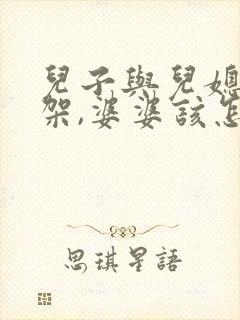 兒子與兒媳
架,婆婆該怎
思琪星語